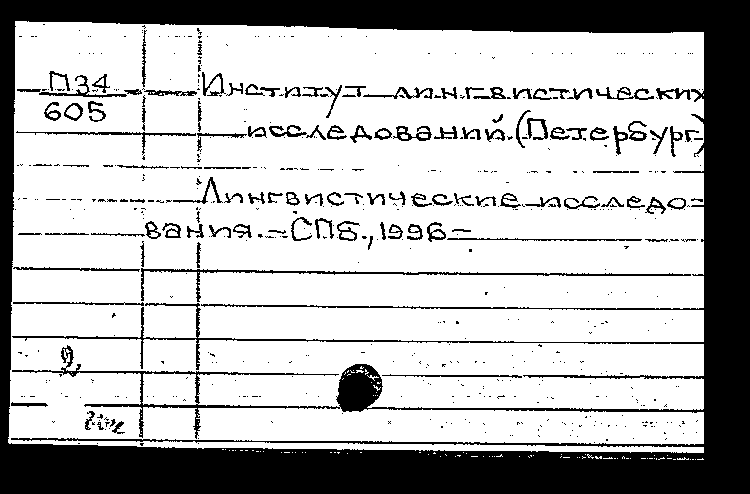 П34
605
Институт лингвистических
исследований (Петербург)
Лингвистические исследо-
вания. – СПб., 1996 –
2